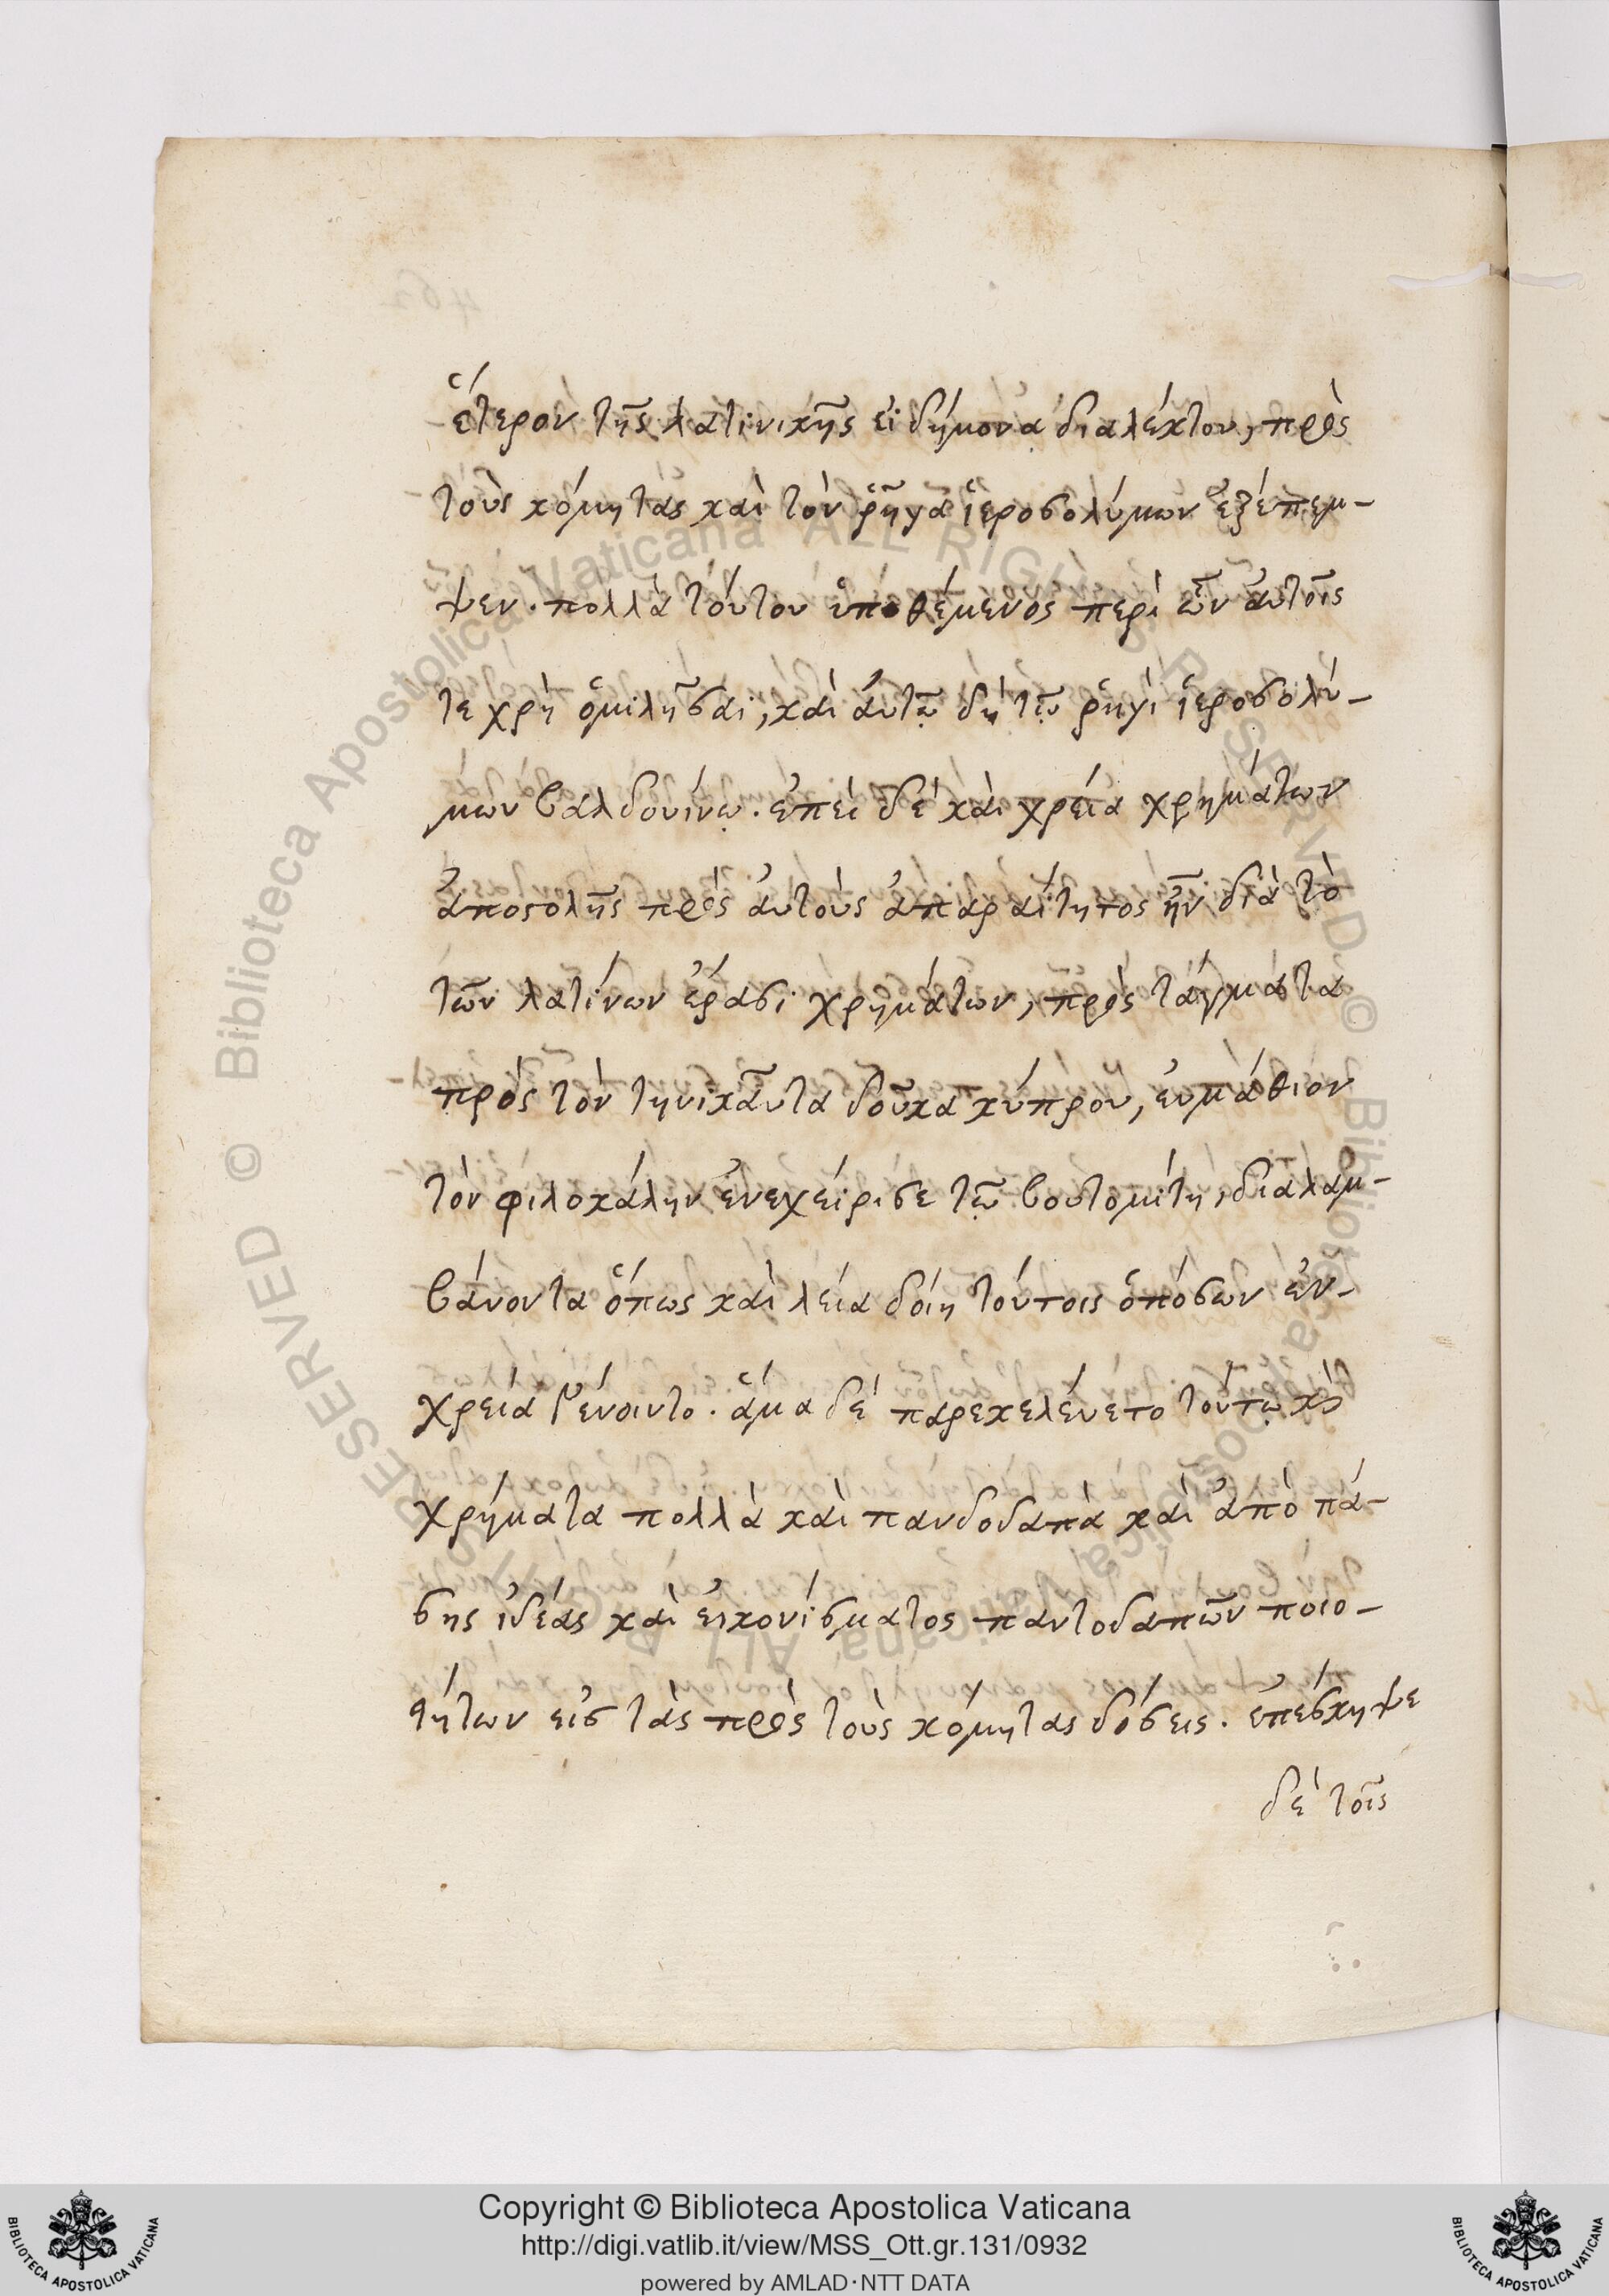 ἕτερον τῆς λατινικῆς εἰδήμονα διαλέκτου, πρὸς
τοὺς κόμητας καὶ τὸν ῥῆγα ἱεροσολύμων ἐξέπεμ-
ψεν. πολλὰ τούτου ὑποθέμενος περὶ ὧν αὐτοῖς
τε χρὴ ὁμιλῆσαι, καὶ αὐτῷ δὴ τῷ ῥηγὶ ἱεροσολύ-
μων βαλδουίνῳ. ἐπεὶ δὲ καὶ χρεία χρημάτων
ἀποστολῆς πρὸς αὐτοὺς ἀπαραίτητος ἦν διὰ τὸ
τῶν λατίνων ἐρασι χρημάτων, πρὸς τάγματα
πρὸς τὸν τηνικαῦτα δοῦκα κύπρου, εὐμάθιον
τὸν φιλοκάλην ἐνεχείρισε τῷ βουτομίτη, διαλαμ-
βάνοντα ὅπως καὶ λεία δοίη τούτοις ὁπόσων ἐν-
χρεία γένοιντο. ἅμα δὲ παρεκελεύετο τούτῳ καὶ
χρήματα πολλὰ καὶ πανδοδαπὰ καὶ ἀπὸ πά-
σης ἰδέας καὶ εἰκονίσματος παντοδαπῶν ποιο-
τήτων εἰσ τὰς πρὸς τοὺς κόμητας δόσεις. ἐπέσκηψε
δὲ τοῖς
© Biblioteca Apostolica Vaticana ALL RIGHTS RESERVED
Copyright © Biblioteca Apostolica Vaticana
http://digi.vatlib.it/view/MSS_Ott.gr.131/0932
powered by AMLAD·NTT DATA
BIBLIOTECA APOSTOLICA VATICANA
BIBLIOTECA APOSTOLICA VATICANA